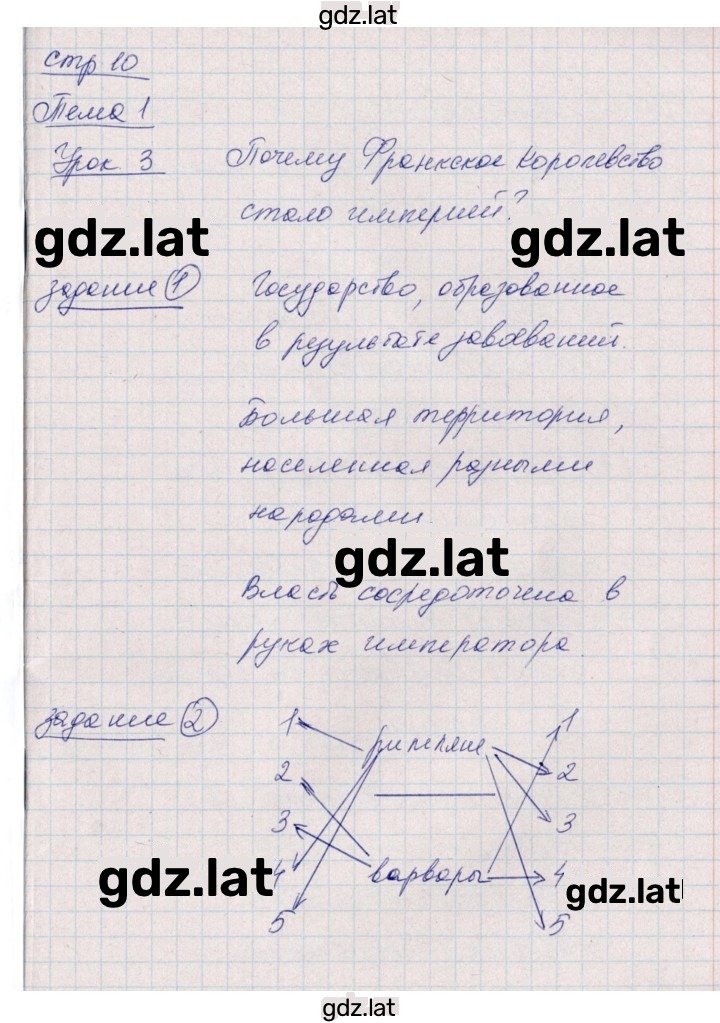 gdz.lat
стр 10
Тема 1
Урок 3 Почему Франкское королевство
стало империей?
gdz.lat gdz.lat
задание 1 Государство, образованное
в результате завоеваний.
Большая территория,
населенная разными
народами.
gdz.lat
Власть сосредоточена в
руках императора
задание 2 1 римляне 1
2 2
3 3
gdz.lat 4 варвары 4 gdz.lat
5 5
gdz.lat